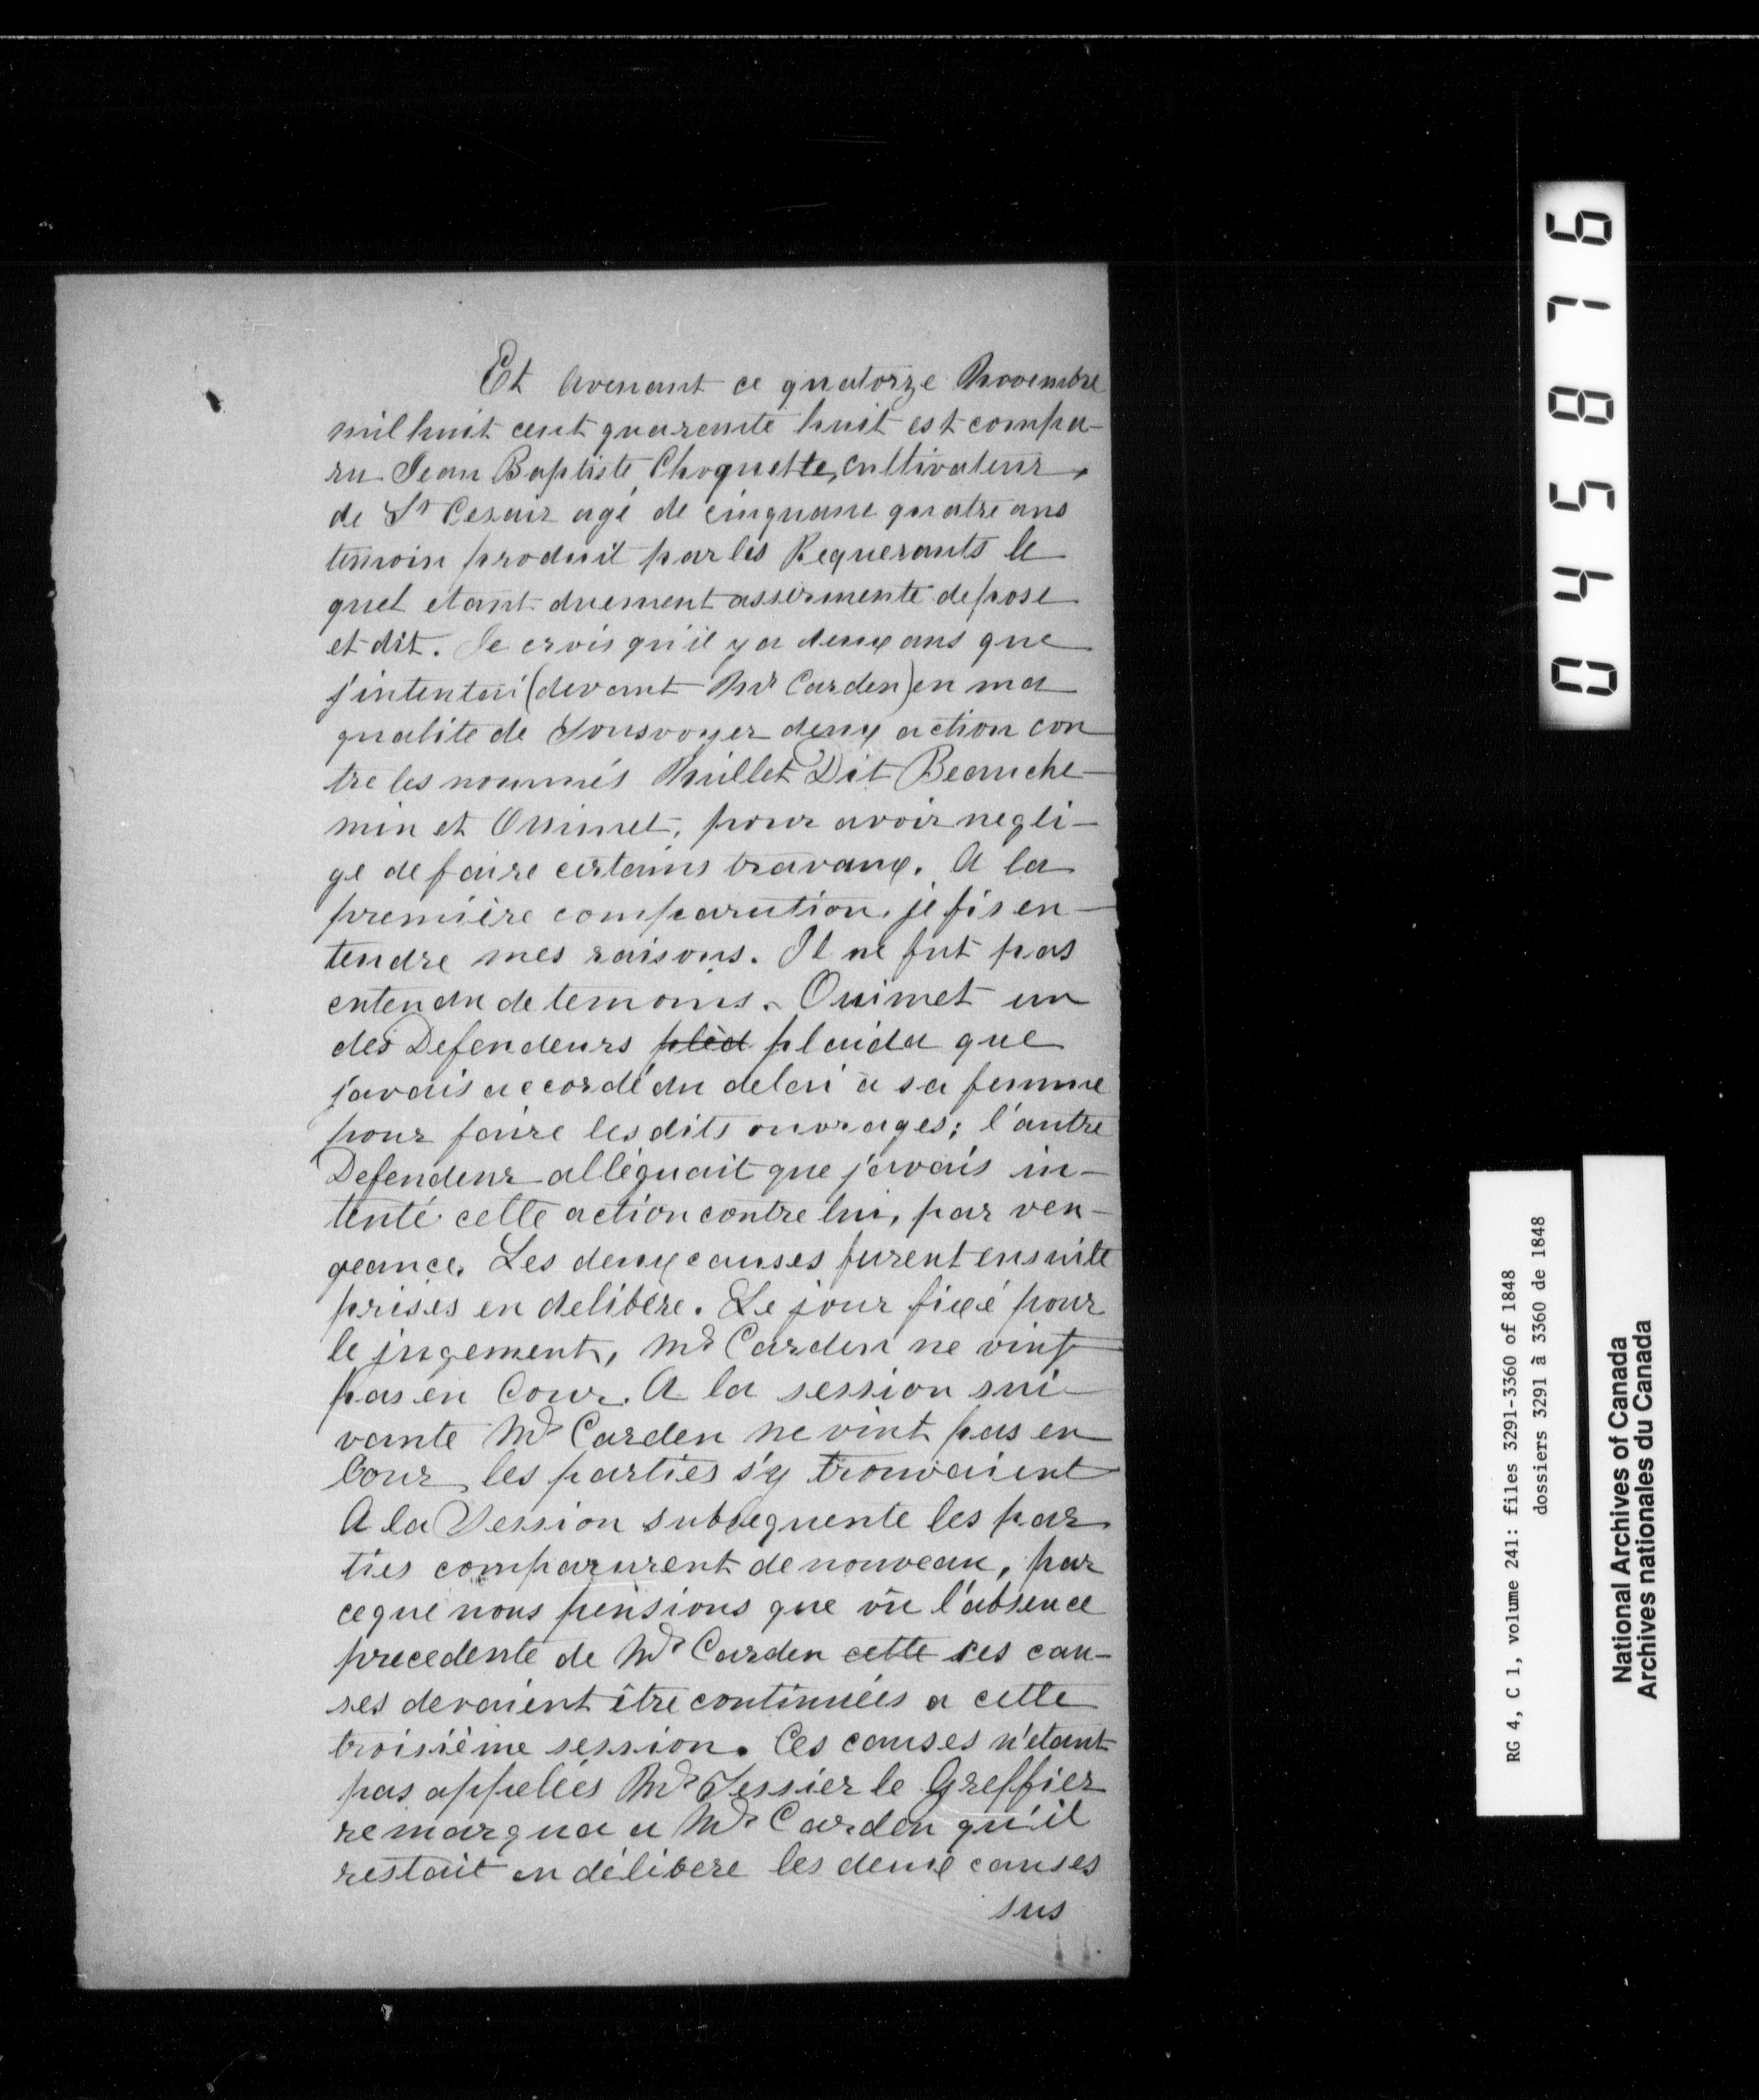 Et Avenant ce quatorze Novembre
mil huit cent quarente huit est compa-
ru Jean Baptiste Choquette, cultivateur,
de St Cesair agé de cinquane quatre ans
temoin produit par les Requerants le
quel etant duement assermenté depose
et dit. Je crois qu'il y a deux ans que
j'intentai (devant Mr Carden) en ma
qualité de Sousvoyer deux action con
tre les nommés Millet Dit Beauche-
min et Ouimet, pour avoir negli-
gé de faire certains travaux. A la
première comparution, je fis en-
tendre mes raisons. Il ne fut pas
entendu de temoins. Ouimet un
des Defendeurs pléd plaida que
j'avais accordé du delai à sa femme
pour faire les dits ouvrages; l'autre
Defendeur alléguait que j'avais in-
tenté cette action contre lui, par ven-
geance. Les deux causes furent ensuite
prises en delibéré. Le jour fixé pour
le jugement, Mr Carden ne vint
pas en Cour. A la session sui-
vante Mr Carden ne vint pas en
Cour, les parties s'y trouvaient
A la Session subsequente les par
ties comparurent de nouveau, par
ce que nous pensions que vû l'absence
precedente de Mr Carden cette ces cau-
ses devaient être continuées a cette
troisième session. Ces causes n'etant
pas appelées Mr Tessier le Greffier
remarqua a Mr Carden qu'il
restait en délibere les deux causes
sus
045876
RG 4, C 1, volume 241: files 3291-3360 of 1848
dossiers 3291 à 3360 de 1848
National Archives of Canada
Archives nationales du Canada